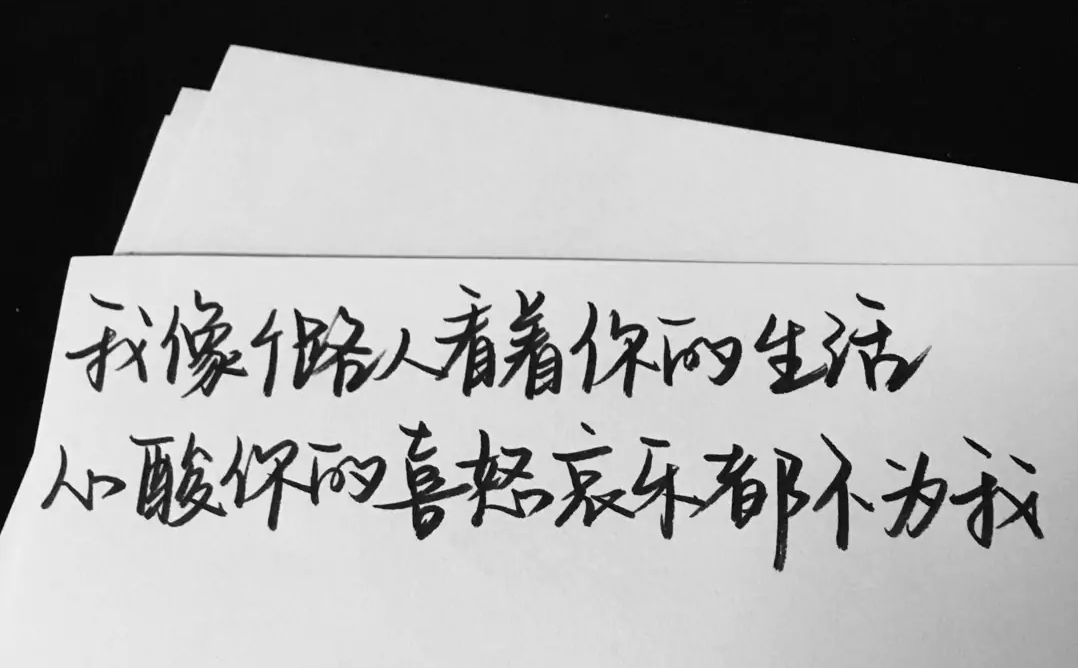 我像个路人看着你的生活
心酸你的喜怒哀乐都不为我